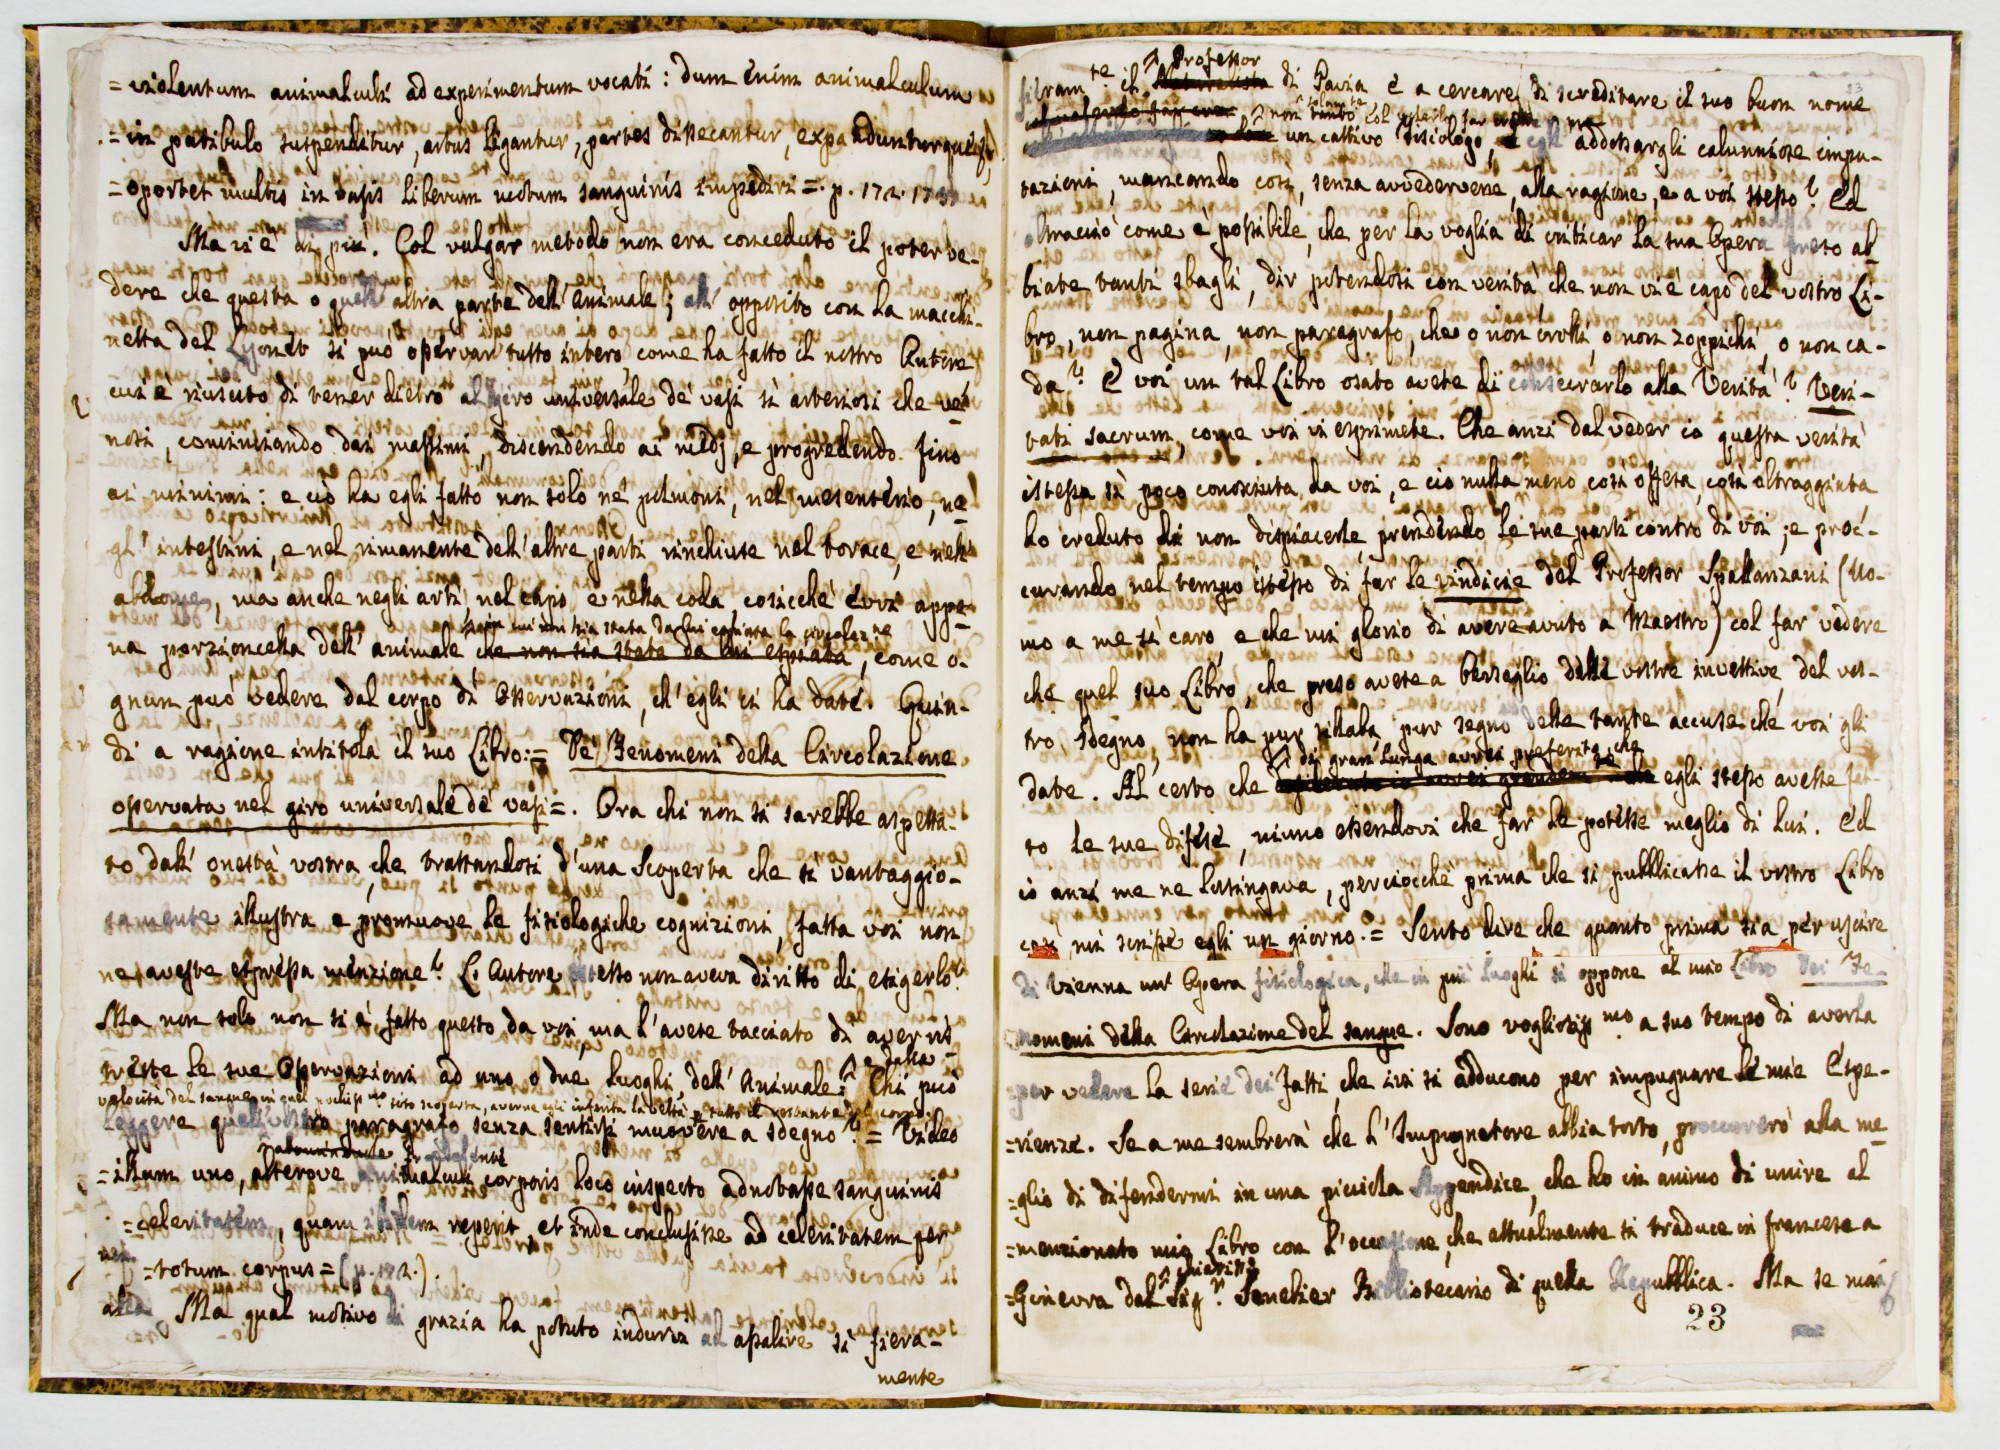 = violentum animalculi ad experimentum vocati: dum enim animalculum
= in patibulo suspenditur, artus ligantur, partes dissecantur, expandunturque,
= oportet multis in vasis liberum motum sanguinis impediri =. p. 172. 173
Ma vi è di più. Col vulgar metodo non era conceduto il poter ve-
dere che questa o quell'altra parte dell'animale; all'opposito con la macchi-
netta del Lyonet si può osservar tutto intero, come ha fatto il nostro Autore
cui è riuscito di tener dietro al giro universale de' vasi sì arteriosi che ve-
nosi, cominciando dai massimi, discendendo ai medj, e progredendo fino
ai minimi: e ciò ha egli fatto non solo ne' polmoni, nel mesenterio, ne-
gl'intestini, e nel rimanente dell'altre parti rinchiuse nel torace, e nell'
abdome, ma anche negli arti, nel capo e nella coda, cosicchè èvvi appe-
in cui non sia stata da lui la circolaz.ne
na porzioncella dell'animale che non sia stata da lui espiata, come o-
gnun può vedere dal corpo di Osservazioni, ch'egli ci ha date. Quin-
di a ragione intitola il suo Libro: = De' Fenomeni della Circolazione
osservata nel giro universale de' vasi =. Ora chi non si sarebbe aspetta-
to dall'onestà vostra, che trattandosi d'una Scoperta che sì vantaggio-
samente illustra e promuove le fisiologiche cognizioni, fatta voi non
ne aveste espressa menzione? L'Autore istesso non aveva diritto di esigerlo?
Ma non solo non si è fatto questo da voi, ma l'avete tacciato di aver ri-
strette le sue Osservazioni ad uno o due luoghi dell'Animale, ^ e dalla Chi può
velocità del sangue in quel pochiss.mo sito scoperta, averne egli inferita la p tutto il restante del corpo.
leggere quell'vostro paragrafo senza sentirsi muovere a sdegno? = Video
= illum uno, alterove animalculi corporis loco inspecto adnotasse sanguinis
= celeritatem, quam ibidem reperit, et inde conclusisse ad celeritatem per
= totum corpus = (p. 182.).
Ma qual motivo di grazia ha potuto indurvi ad assalire sì fiera-
mente
^ Professor
te il Naturalista di Pavia e a cercare di screditare il suo buon nome
^ non solamente col volerlo far
un cattivo Fisiologo, ma addossargli calunniose impu-
tazioni, mancando così, senza avvedervene, alla ragione, e a voi stesso? Ed
oltracciò come è possibile, che per la voglia di criticar la sua Opera preso ab-
biate tanti sbagli, dir potendosi con verità che non vi è capo del vostro Li-
bro, non pagina, non paragrafo, che o non crolli, o non zoppichi, o non ca-
da? E voi un tal Libro osato avete di consecrarlo alla Verità? Veri-
tati sacrum, come voi vi esprimete. Che anzi dal veder io questa verità
istessa sì poco conosciuta da voi, e ciò nulla meno così offesa, così oltraggiata
ho creduto di non dispiacerle prendendo le sue parti contro di voi; e proc-
curando nel tempo istesso di far le vindicie del Professor Spallanzani (Uo-
mo a me sì caro, e che mi glorio di avere avuto a Maestro) col far vedere
che quel suo Libro, che preso avete a berseglio delle vostre invettive, del vos-
tro sdegno, non ha pur sillaba, pur segno delle tante accuse che voi gli
^ di gran lunga avrei preferito, che
date. Al certo che egli stesso avesse fat-
to le sue difese, niuno essendovi che far le potesse meglio di lui. Ed
io anzi me ne lusingava, perciocchè prima che si pubblicasse il vostro Libro
così mi scrisse egli un giorno. = Sento dire che quanto prima sia per uscire
di Vienna un'Opera fisiologica, che in più luoghi si oppone al mio Libro Dei Fe-
nomeni della Circolazione del sangue. Sono vogliosiss.mo a suo tempo di averla
per vedere la serie dei fatti, che ivi si adducono per impugnare le mie Espe-
= rienze. Se a me sembrerà che l'Impugnatore abbia torto, proccurerò alla me-
= glio di difendermi in una picciola Appendice, che ho in animo di unire al
= menzionato mio Libro con l'occasione, che attualmente si traduce in francese a
= Ginevra dal Sig.r Senebier Bibliotecario di quella Repubblica. Ma se mai
23